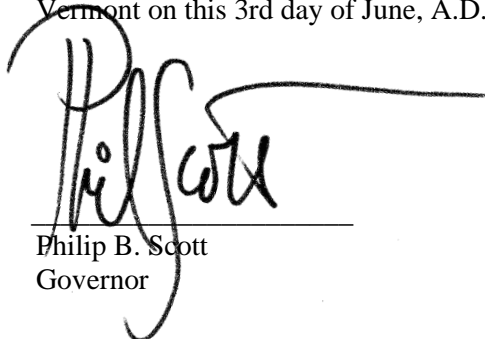 Vermont on this 3rd day of June, A.D.
Phil Scott
Philip B. Scott
Governor